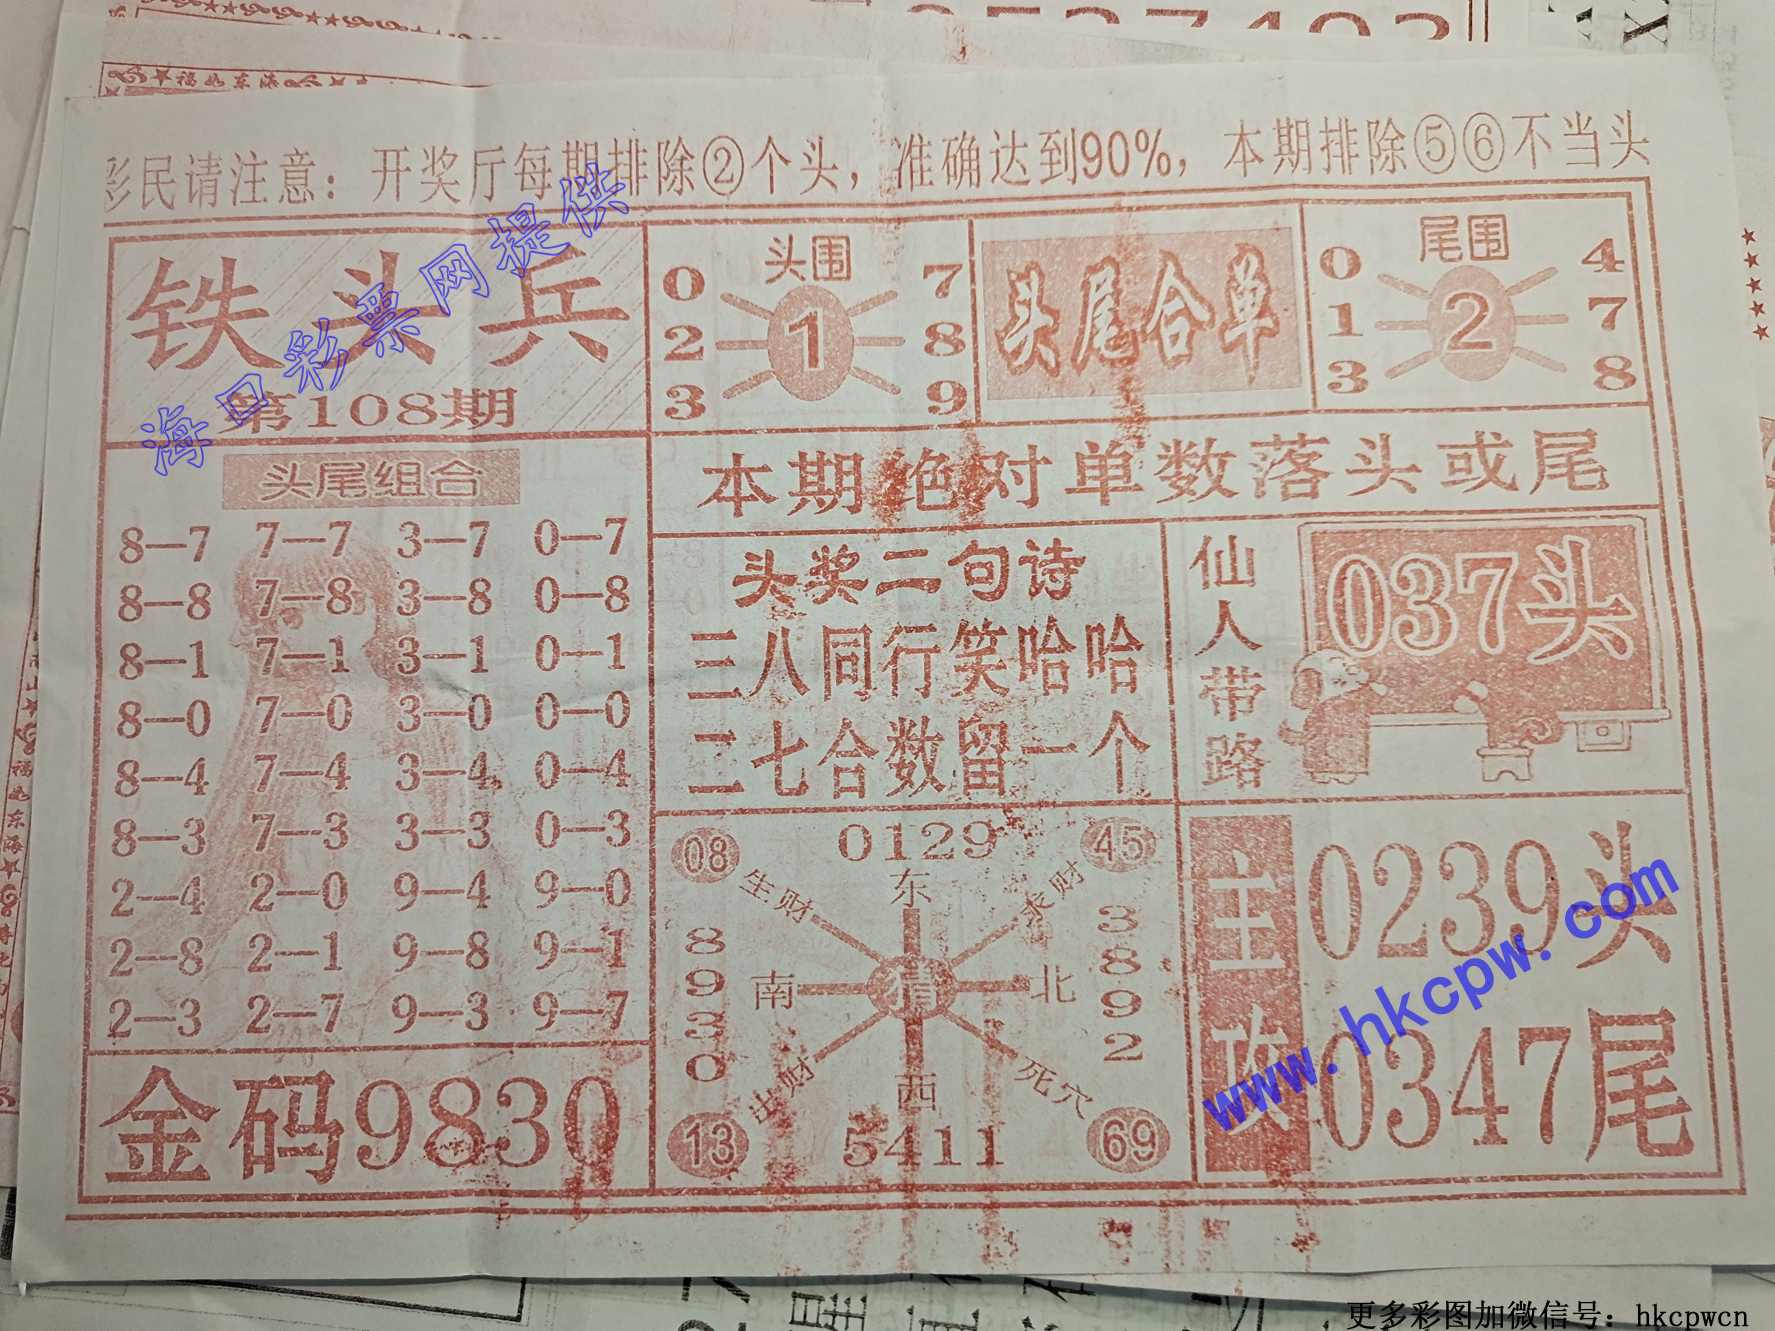 福如东海
彩民请注意：开奖厅每期排除②个头，准确达到90%，本期排除⑤⑥不当头
铁头兵
第108期
头围
0 7
2 1 8
3 9
头尾合单
尾围
0 4
1 2 7
3 8
本期绝对单数落头或尾
头尾组合
8—7 7—7 3—7 0—7
8—8 7—8 3—8 0—8
8—1 7—1 3—1 0—1
8—0 7—0 3—0 0—0
8—4 7—4 3—4 0—4
8—3 7—3 3—3 0—3
2—4 2—0 9—4 9—0
2—8 2—1 9—8 9—1
2—3 2—7 9—3 9—7
金码9830
头奖二句诗
三八同行笑哈哈
二七合数留一个
仙人带路
037头
08 0129 45
生财 东 求财
8930 南 猜 北 3892
出财 西 死穴
13 5411 69
主攻
0239头
0347尾
海口彩票网提供
www.hkcpw.com
更多彩图加微信号：hkcpwcn